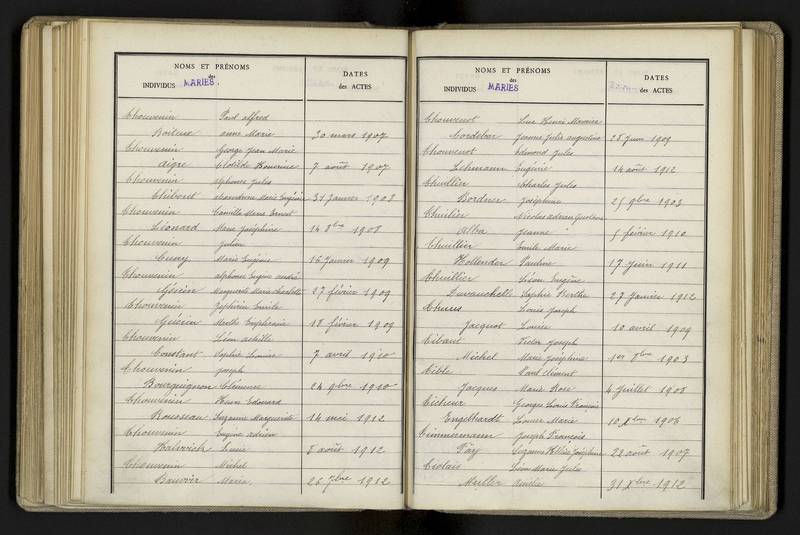 NOMS ET PRÉNOMS
des
INDIVIDUS MARIES.
DATES
des ACTES
Chouvenin Paul alfred
Boiteux anne Marie 30 mars 1907
Chouvenin George Jean Marie
Aigre Clotilde Honorine 7 août 1907
Chouvenin Alphonse Jules
Thiberit Marie Eugénie 31 Janvier 1908
Chouvenin Camille Marie Ernest
Léonard Marie Joséphine 14 8bre 1908
Chouvenin Julien
Cuny Marie Eugénie 16 Janvier 1909
Chouvenin alphonse Eugène andré
Génin Marguerite Marie Charlotte 27 février 1909
Chouvenin Zéphirin Emile
Génin Marthe Euphrasie 18 février 1909
Chouvenin Léon achille
Constant Sophie Louise 7 avril 1910
Chouvenin Joseph
Bourguignon Clémence 24 9bre 1910
Chouvenin Henri Edouard
Rousseau Suzanne Marguerite 14 mai 1912
Chouvenin Eugène adrien
Lucie 8 août 1912
Chouvenin Michel
Bouvier Marie 26 7bre 1912
NOMS ET PRÉNOMS
des
INDIVIDUS MARIES
DATES
des ACTES
Chouvenot Luc Henri Maurice
Cordebar Jeanne Julie augustine 28 Juin 1909
Chouvenot Edmond Jules
Lehmann Eugénie 14 août 1912
Chuillier Charles Jules
Bordner Joséphine 25 9bre 1903
Chuilier Nicolas adrien
Alba Jeanne 5 février 1910
Chuillier Emile Marie
Hollender Pauline 17 Juin 1911
Chuillier Léon Eugène
Sophie Berthe 27 Janvier 1912
Louis Joseph
Jacquot Louise 10 avril 1909
Cibaut Victor Joseph
Michel Marie Joséphine 1er 8bre 1903
Cible Paul Clément
Jacques Marie Rose 4 Juillet 1908
Cicheur Georges Louis François
Engelhardt Louise Marie 10 Xbre 1908
Cimmermann Joseph François
Fäy Suzanne Joséphine 22 août 1907
Ciolais Léon Marie Jules
Muller Amélie 31 Xbre 1912